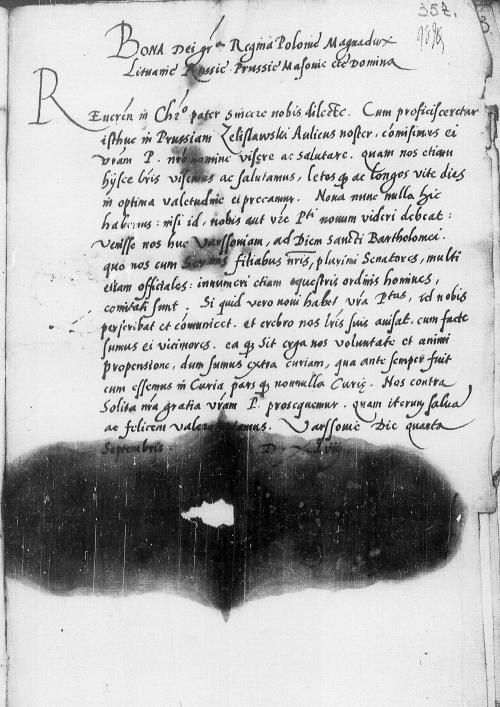 357.
BONA Dei gra Regina Polonie Magnadux
Lituanie Russie Prussie Masovie etc Domina
Reveren in Chro pater sincere nobis dilecte. Cum proficisceretur
isthuc in Prussiam Zelislawski Aulicus noster, comisimus ei
vram P. nro nomine visere ac salutare. quam nos etiam
hysce lris visimus ac salutamus, letos q ac longos vite dies
in optima valetudine ei precamur. Nova nunc nulla hic
habemus: nisi id, nobis aut vre Pti novum videri debeat:
venisse nos huc Varssoviam, ad Diem Sancti Bartholomei.
quo nos cum filiabus nris, plurimi Senatores, multi
etiam officiales: innumeri etiam equestris ordinis homines,
comitati sunt. Si quid vero novi habet vra Ptas, id nobis
perscribat et comunicet. et crebro nos lris suis avisat, cum facte
sumus ei viciniores. ea q sit erga nos voluntate et animi
propensione, dum sumus extra curiam, qua ante semper fuit
cum essemus in Curia pars q nonnulla Curie. Nos contra
Solita nra gratia vram P. prosequemur. quam iterum salva
ac felicem valere optamus. Varssovie Die quarta
Septembris. D. XLviii